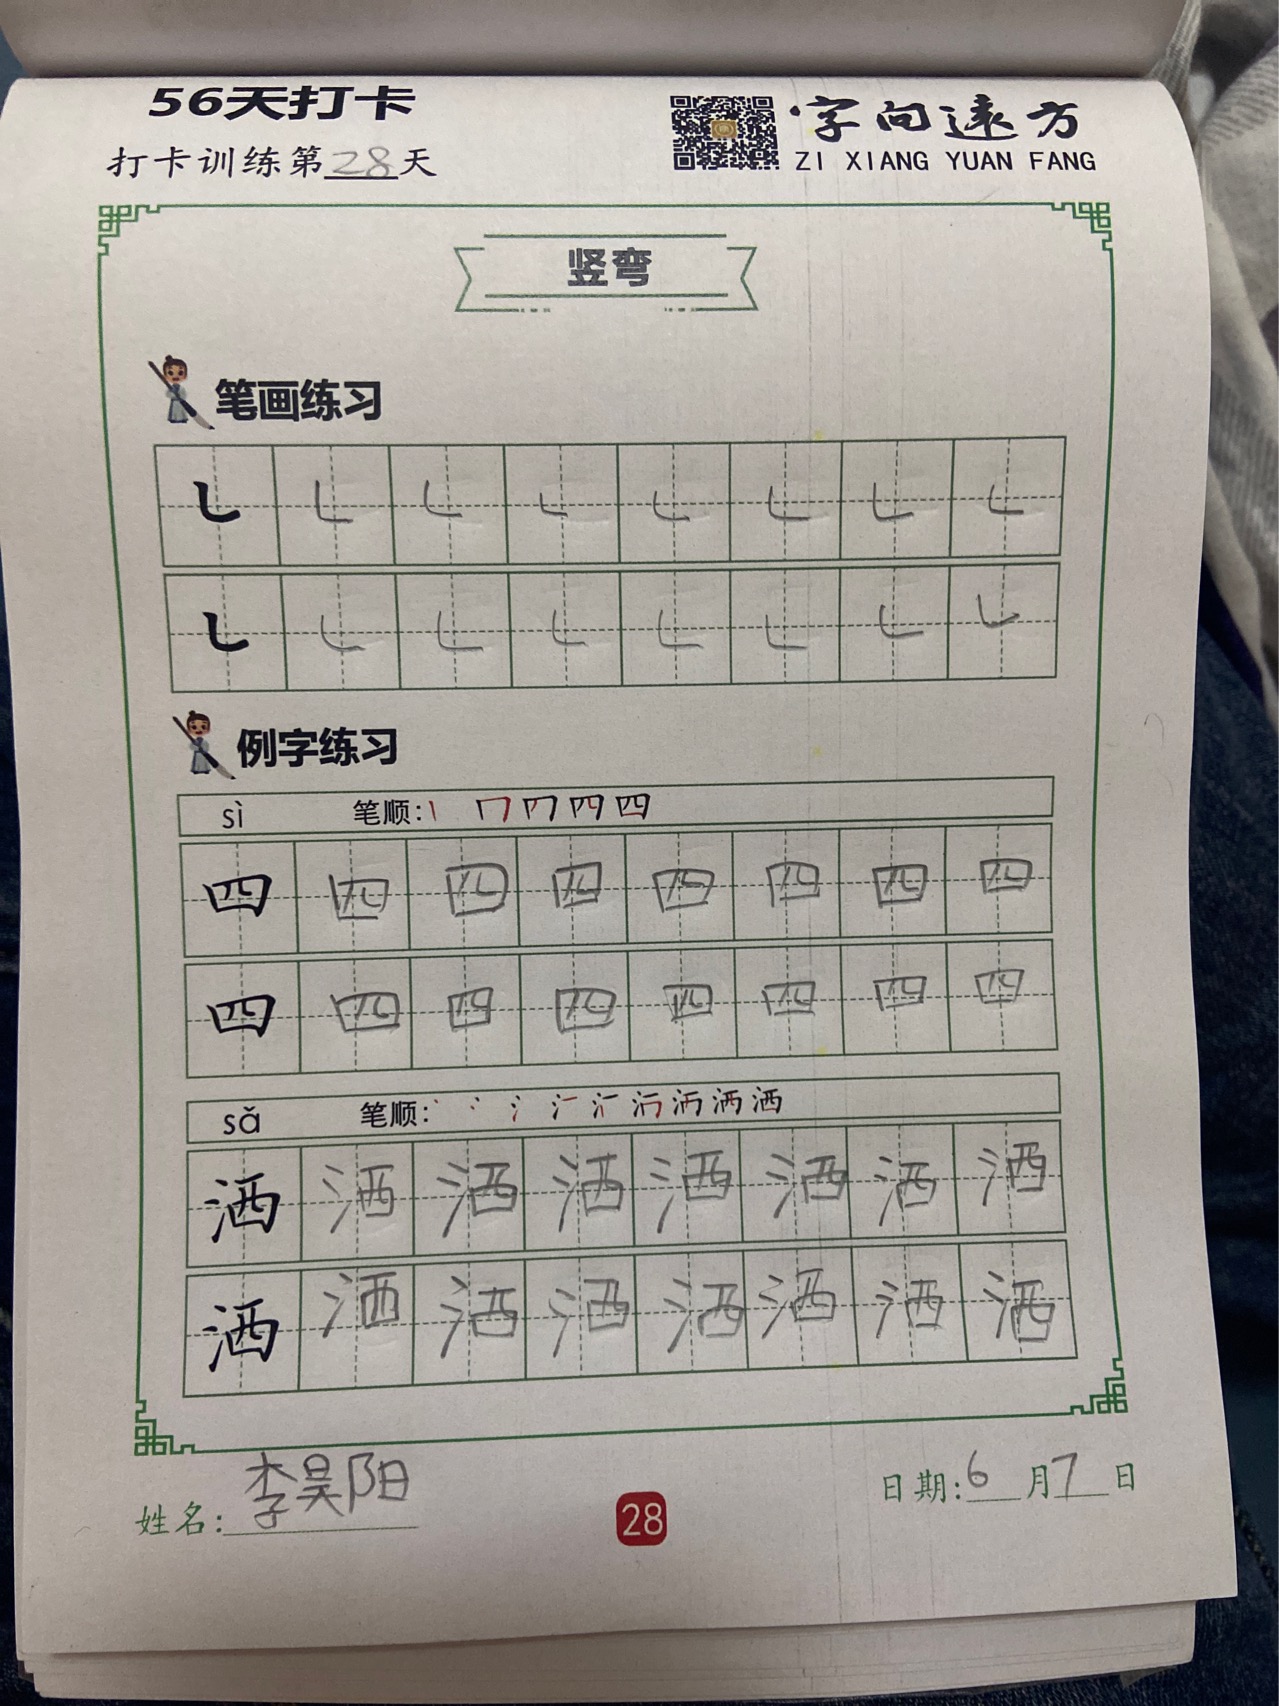 56天打卡
字向远方
打卡训练第28天
ZI XIANG YUAN FANG
竖弯
笔画练习
㇄ ㇄ ㇄ ㇄ ㇄ ㇄ ㇄ ㇄
㇄ ㇄ ㇄ ㇄ ㇄ ㇄ ㇄ ㇄
例字练习
sì 笔顺: 四
四 四 四 四 四 四 四 四
四 四 四 四 四 四 四 四
sǎ 笔顺: 洒
洒 洒 洒 洒 洒 洒 洒 洒
洒 洒 洒 洒 洒 洒 洒 洒
姓名: 李昊阳
28
日期: 6 月 7 日